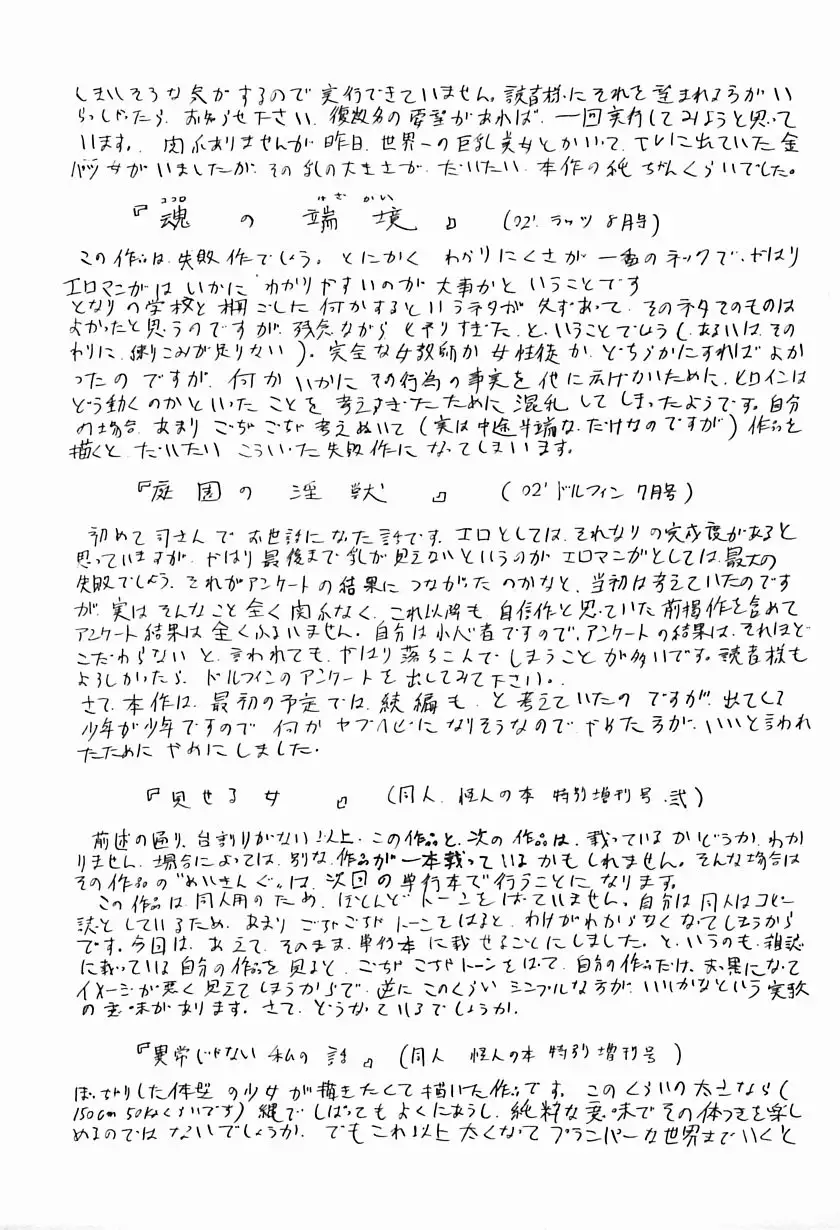 しまいそうな気がするので実行できていません。読者様にそれを望まれる方がい
らっしゃったら、お知らせ下さい。復数名の要望があれば、一回実行してみようと思って
います。関係ありませんが昨日、世界一の巨乳美女とかいって、TVに出ていた金
パツ女がいましたが、その乳の大きさが、だいたい、本作の純ちゃんくらいでした。
『魂の端境』 (02' ラッツ 8月号)
ココロ はざかい
この作品は、失敗作でしょう。とにかく わかりにくさが一番のネックで、やはり
エロマンガは いかに わかりやすいのが 大事かと いうことです
となりの学校と 柵ごしに 何かするというネタが 先ずあって、そのネタでのものは
よかったと思うのですが、残念ながら とやりすぎた、と、いうことでしょう(あるいは、その
わりに、練りこみが足りない)。完全な女教師か 女性徒か、どちらかにすれば よか
ったの ですが、何か いかに その行為の事実を 他に広げないために、ヒロインは
どう動くのかといった ことを 考えすぎたために 混乱 して しまったようです。自分
の場合、あまり ごちゃごちゃ 考えぬいて (実は中途半端な、だけなのですが) 作品を
描くと、だいたい こういった失敗作に なってしまいます。
『庭園の淫獣』 (02' ドルフィン 7月号)
初めて 司さんで お世話になった話です。エロとしては、それなりの完成度があると
思っていますが、やはり最後まで乳が見えないというのが エロマンガとしては、最大の
失敗でしょう。それがアンケートの結果に つながった のかなと、当初は考えていたのです
が、実は そんなこと 全く 関係なく、これ以降も 自信作と思っていた前掲作を含めて
アンケート結果は 全くふるいません。自分は小心者ですので、アンケートの結果は、それほど
こだわらない と、言われても、やはり落ちこんで しまうこと が多いです。読者様も
よろしかったら、ドルフィンのアンケートを出してみて下さい。
さて、本作は、最初の予定では、続編も、と考えていたの ですが、出てくる
少年が少年ですので 何か ヤブヘビに なりそうなので やめた方が、いいと言われ
たために やめにしました。
『見せる女』 (同人、怪人の本 特別増刊号・弐)
前述の通り、台割りがない以上、この作品と、次の 作品は、載っているかどうか、わか
りません。場合によっては、別な作品が一本載っているかもしれません。そんな場合は
その作品の"めいきんぐ"は、次回の単行本で行うことになります。
この作品は同人用のため、ほとんどトーンをはっていません。自分は同人はコピー
誌としているため、あまり ごちゃごちゃ トーンをはると、わけがわからなくなってしまうから
です。今回は、あえて、そのまま、単行本に載せることにしました。と、いうのも、雑誌
に載っている自分の作品を見ると、ごちゃごちゃトーンをはって、自分の作品だけ、真っ黒になって
イメージが悪く見えてしまうからで、逆に このくらい シンプルな方が、いいかなという実験
の意味があります。さて、どうなっているでしょうか。
『異常じゃない私の話』 (同人 怪人の本 特別増刊号)
ぽっちゃりした体型 の少女が描きたくて描いた作品です。このくらいの太さなら(
150cm 50kgくらいです) 縄でしばってもよくにあうし、純粋な意味でその体つきを楽し
めるのではないでしょうか。でもこれ以上 太くなって プランパーな世界まで いくと